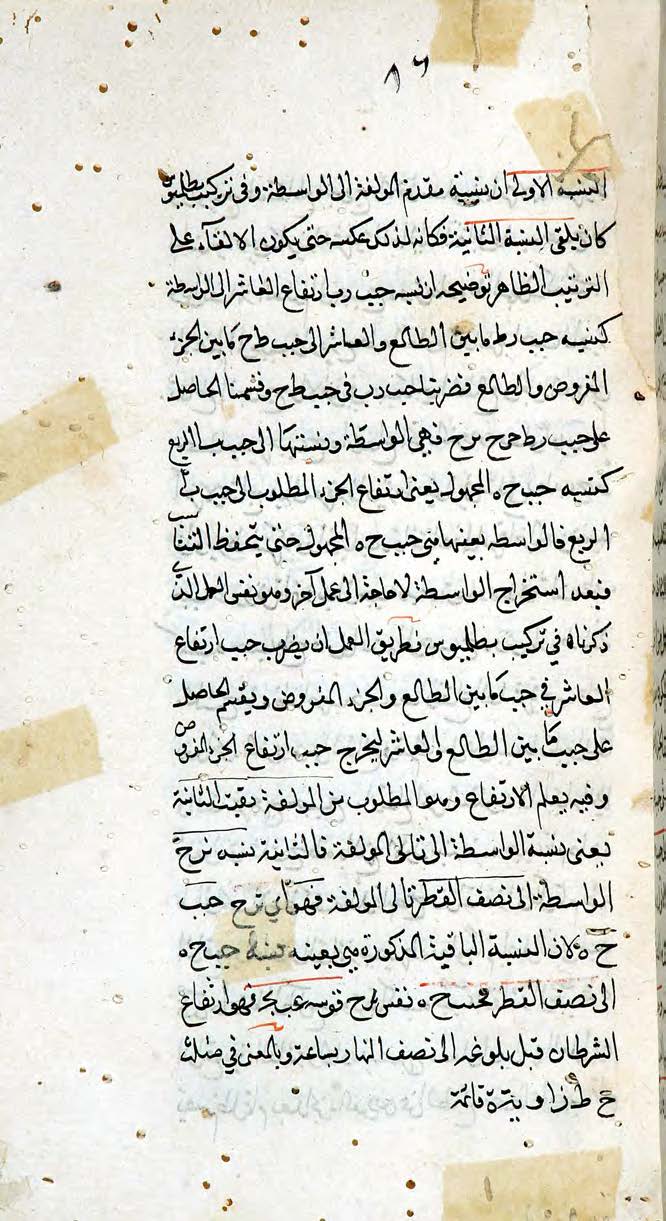 ٨٦
النسبة الاولى ان نسبة مقدم المولفة الى الواسطة وفى تركيب بطلميوس
كان يلقى النسبة الثانية فكانه لذلك عكسه حتى يكون الالقآء على
الترتيب الظاهر توضيحه ان نسبه جيب د ب ارتفاع العاشر الى الواسطة
كنسبه جيب د ط ما بين الطالع والعاشر الى جيب ط ح ما بين الجزء
المفروض والطالع فضربنا جيب د ب فى جيب ط ح وقسمنا الحاصل
على جيب د ط فهى الواسطة ونسبتها الى جيب الربع
كنسبه جيب ح ه المجهول يعنى ارتفاع الجزء المطلوب الى جيب
الربع فالواسطه بعينها هى جيب ح ه المجهول حتى يتحفظ التناسب
فبعد استخراج الواسطة لا حاجة الى عمل آخر وهو نفس العمل الذى
ذكرناه في تركيب بطلميوس فطريق العمل ان يضرب جيب ارتفاع
العاشر في جيب ما بين الطالع والجزء المفروض ويقسم الحاصل
على جيب ما بين الطالع والعاشر ليخرج جيب ارتفاع الجزء المفروض
وفيه يعلم الارتفاع وهو المطلوب من المولفة بقيت الثانية
يعنى نسبة الواسطة الى تالى المولفة فالثانية نسبه
الواسطة الى نصف القطر تالى المولفة فهو اى جيب
ح ه لان النسبة الباقية المذكورة هى بعينه نسبة جيب ح ه
الى نصف القطر نفس قوسه فهو ارتفاع
السرطان قبل بلوغه الى نصف النهار بساعة وبالمعنى في مثلث
ح ط ه زاوية ه قائمة